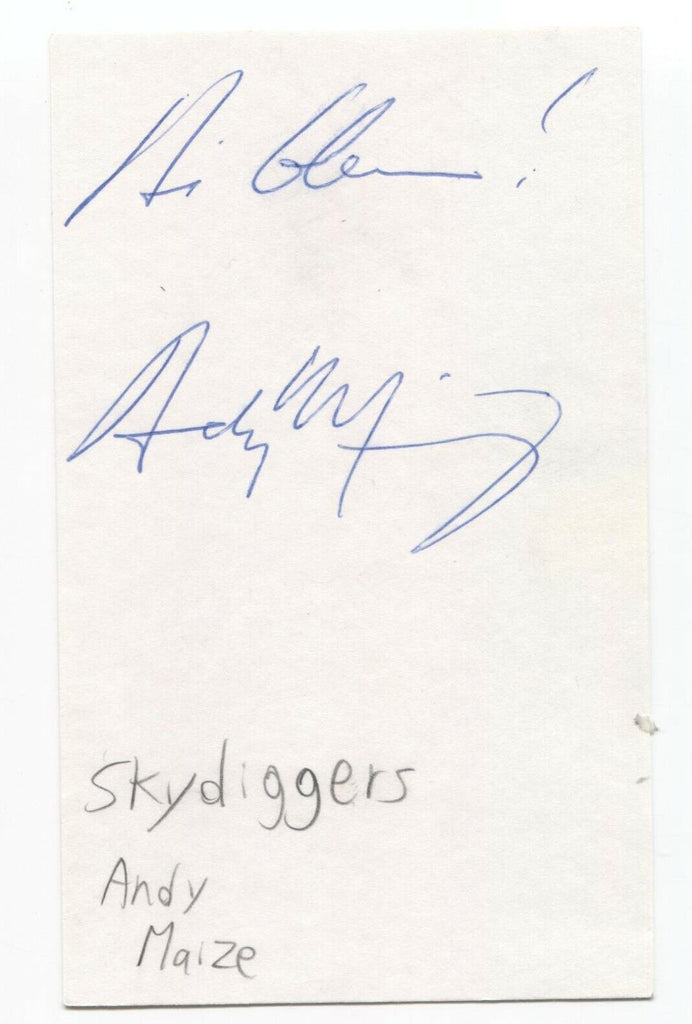 Hi Glenn!
Andy Maize
Skydiggers
Andy
Maize